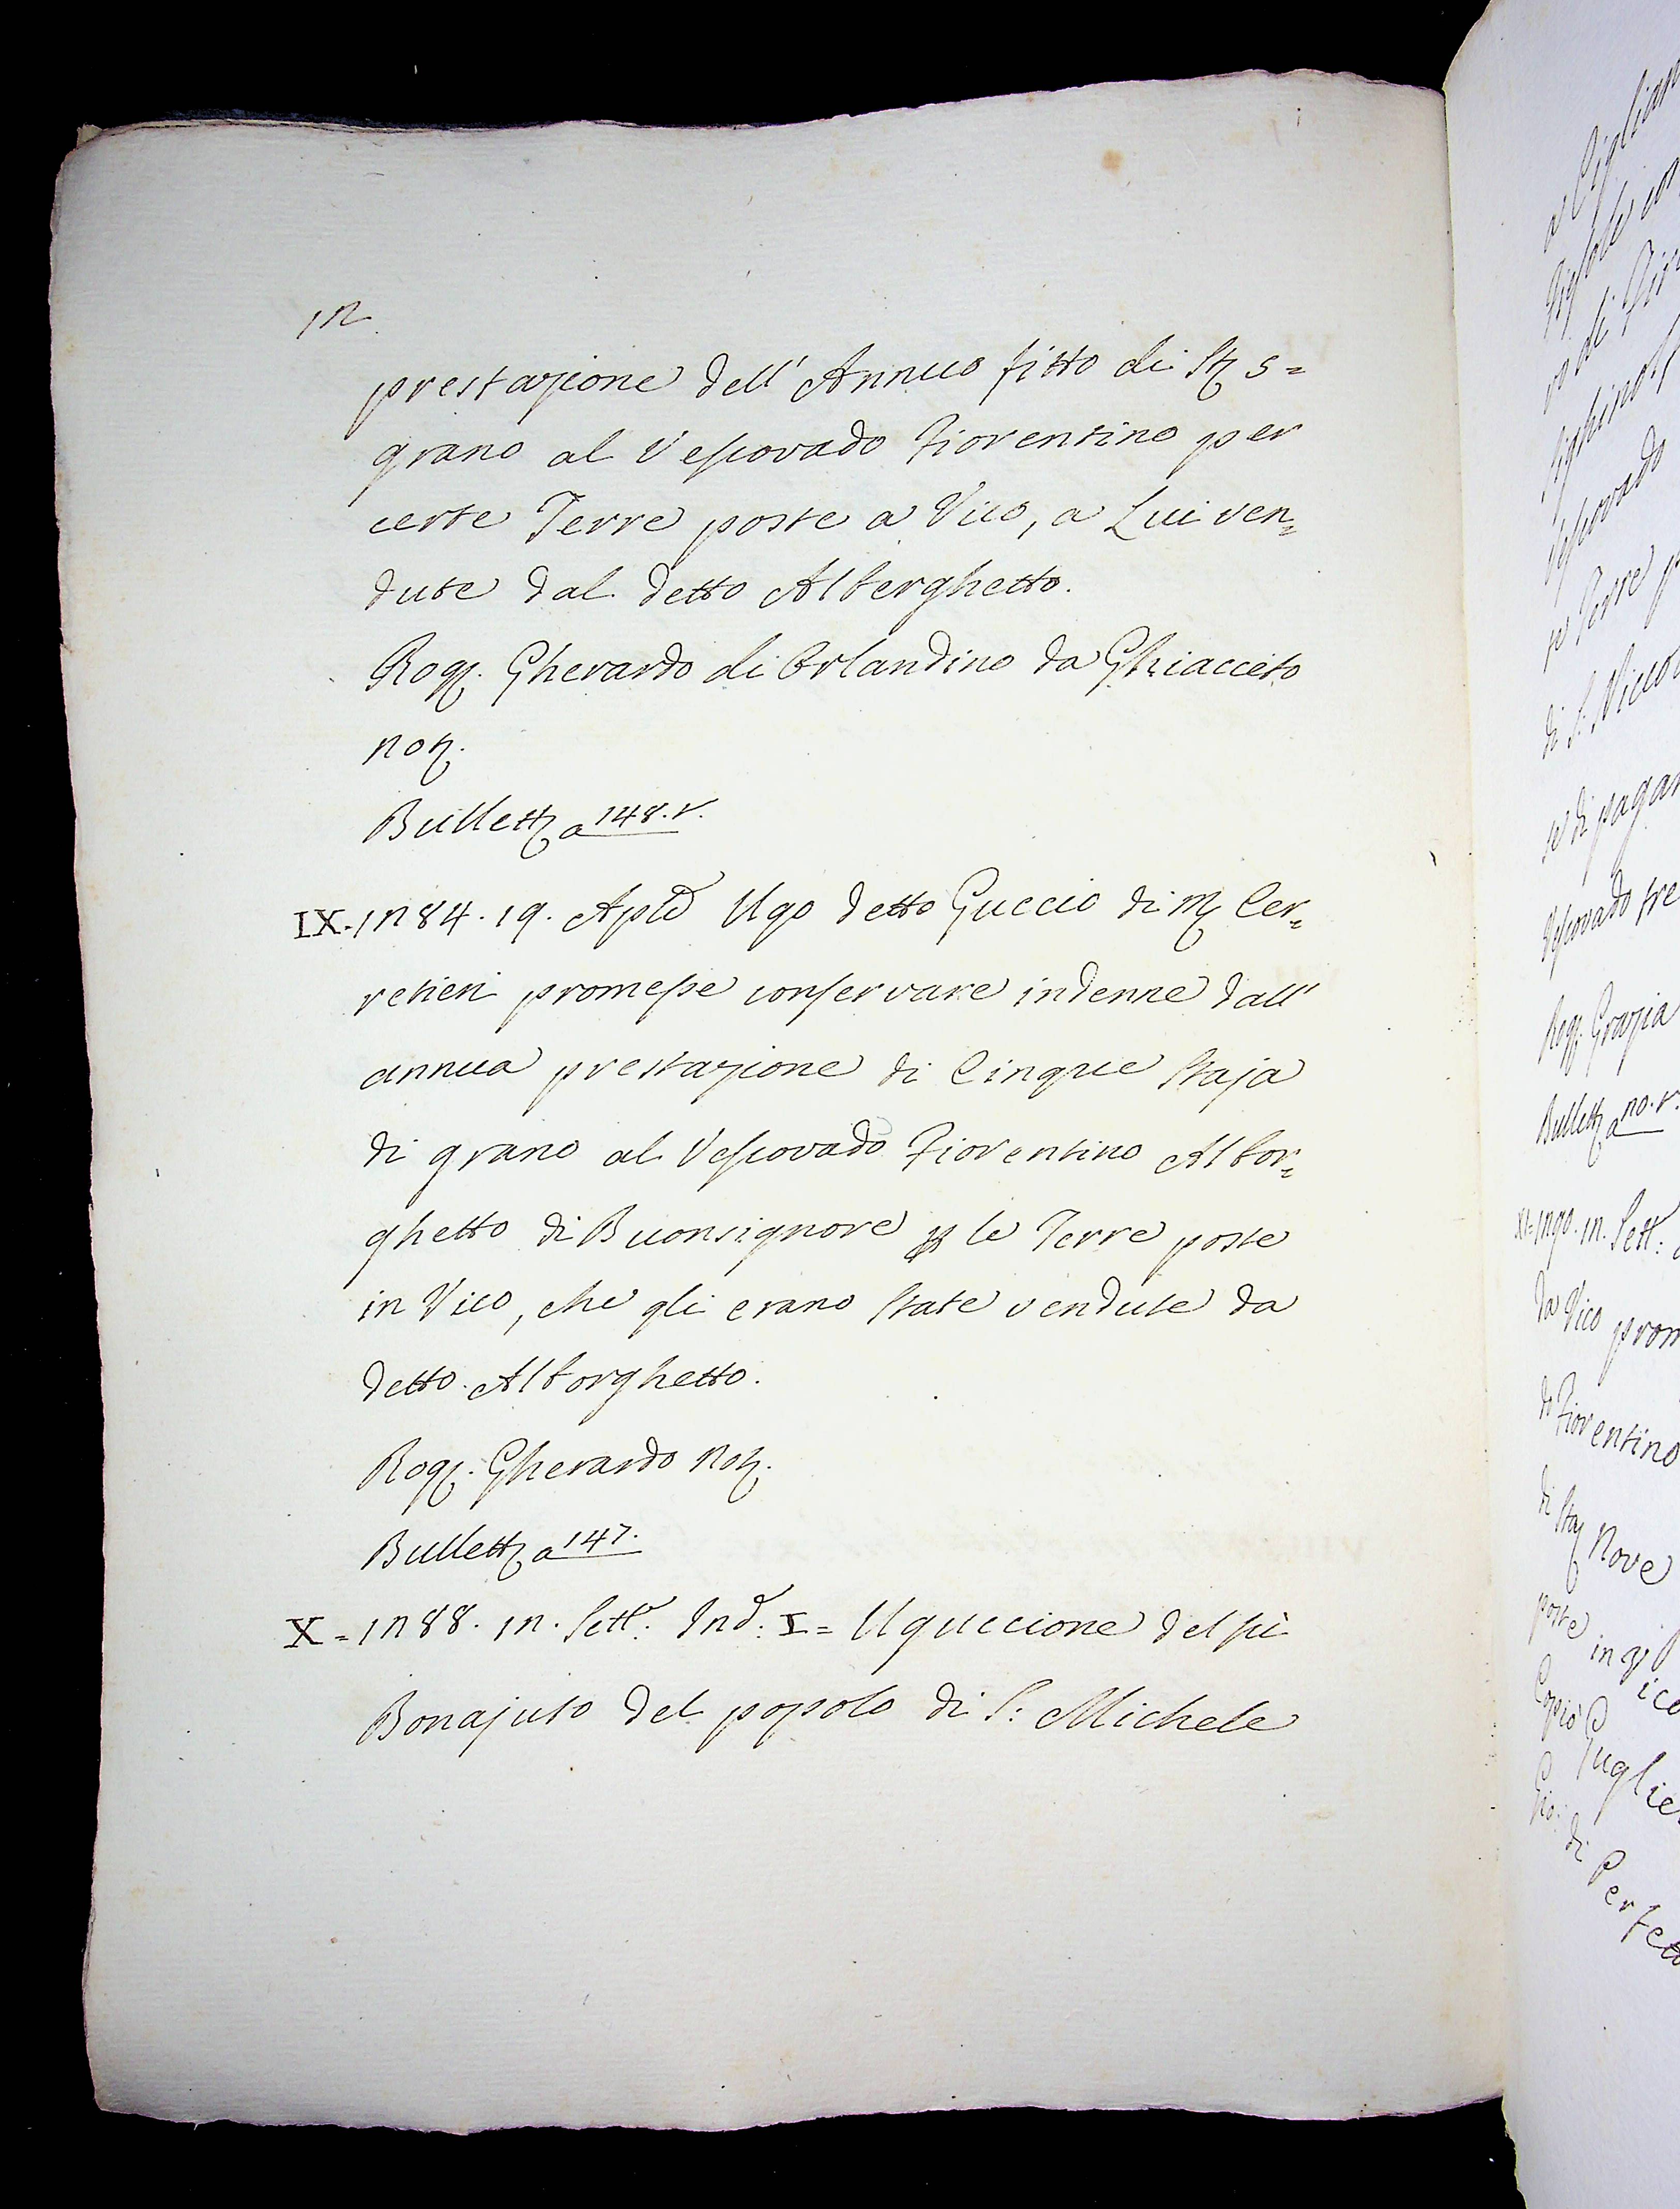 12
prestazione dell' Annuo fitto di St. 5=
grano al Vescovado Fiorentino per
certe Terre poste a Vico, a Lui ven=
dute dal detto Alberghetto.
Rog. Gherardo di Orlandino da Ghiacceto
not.
Bullett. a 148. v.
IX. 1284. 19. Aple Ugo detto Guccio di M. Cer=
retieri promesse conservare indenne dall'
annua prestazione di Cinque staja
di grano al Vescovado Fiorentino Albor=
ghetto di Buonsignore p le Terre poste
in Vico, che gli erano state vendute da
detto Alborghetto.
Rog. Gherardo Not.
Bullett. a 147.
X = 1288. 12. Sett.e Ind. I = Uguccione del fù
Bonajuto del popolo di S: Michele
a Ciglian
vo di Fir
Vescovado
p Terre p
di S. Niccol
se di pagar
Vescovado tre
Rog. Grazia
Bullett. a 20. v.
XI = 1290. 12. Sett.:
da Vico prom
do Fiorentino
di Sta. Nove
poste in Vico
Copiò Guglie
Gio: di Benfett